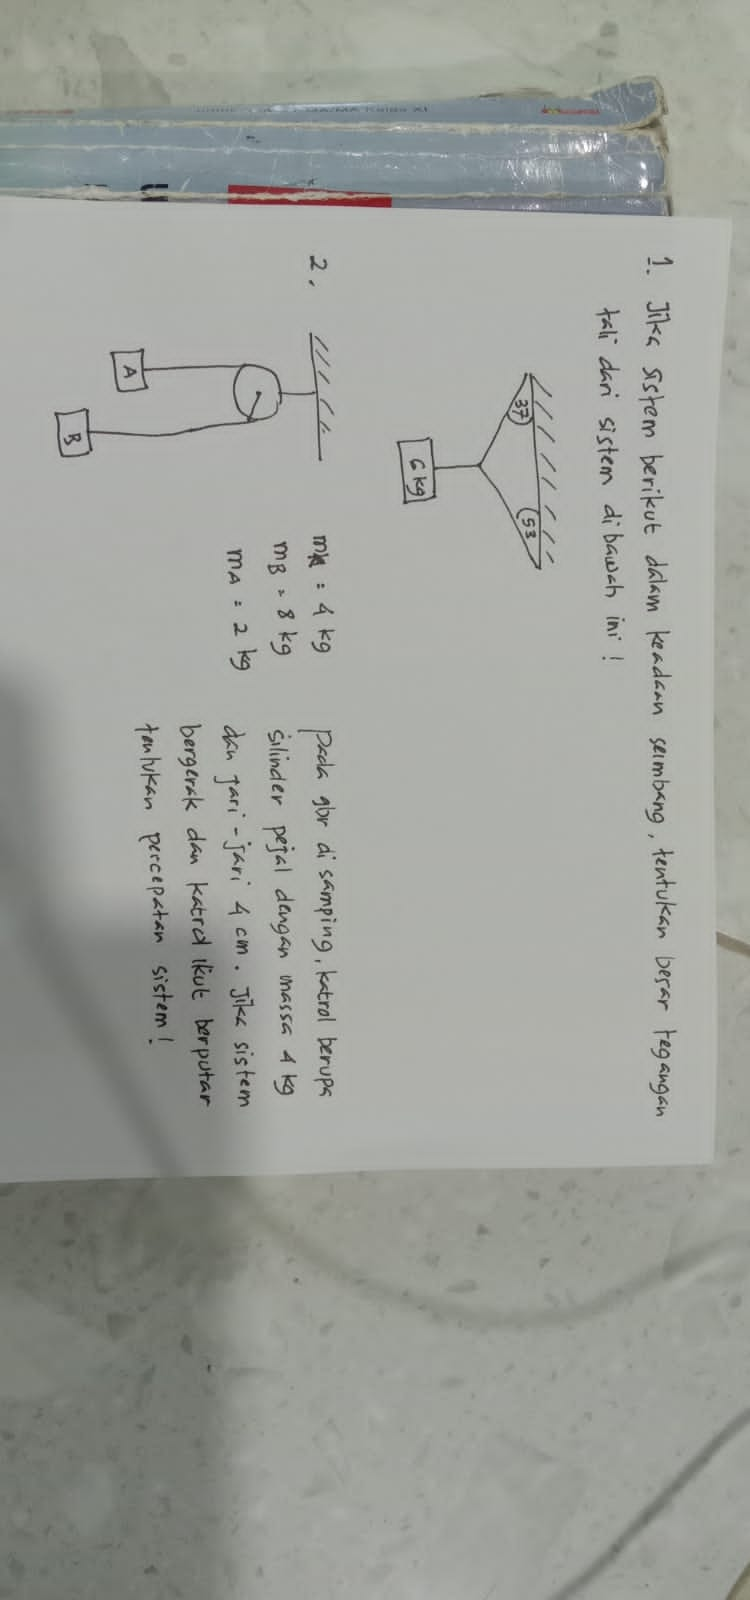 1. Jika sistem berikut dalam keadaan seimbang, tentukan besar tegangan
tali dari sistem dibawah ini!
37
53
6 kg
2.
A
B
mk = 4 kg
mB = 8 kg
mA = 2 kg
pada gbr di samping, katrol berupa
silinder pejal dengan massa 4 kg
dan jari-jari 4 cm. Jika sistem
bergerak dan katrol ikut berputar
tentukan percepatan sistem!